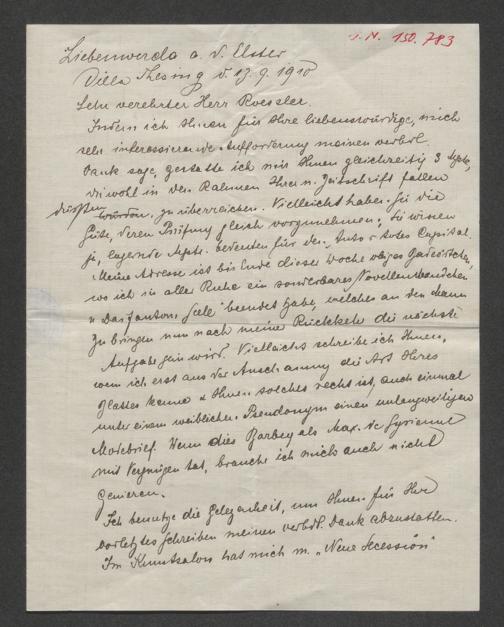 J. N. 150.783
Liebenwerda a. d. Elster
Villa Thesing d. 13. 9. 1910
Sehr verehrter Herr Roessler.
Indem ich Ihnen für Ihre liebenswürdige, mich
sehr interessierende Aufforderung meinen verbdl.
Dank sage, gestatte ich mir Ihnen gleichzeitig 3
die wohl in den Rahmen Ihrer n. Zeitschrift fallen
dürften zu überreichen. Vielleicht haben Sie die
Güte, deren Prüfung gleich vorzunehmen; Sie wissen
ja, lagernde Mpte. bedeuten für den Autor totes Capital.
Meine Adresse ist bis Ende dieser Woche obiges
wo ich in aller Ruhe ein sonderbares Novellenbändchen
"Das Seele" beendet habe, welches an den Mann
zu bringen nun nach meiner Rückkehr die nächste
Aufgabe sein wird. Vielleicht schreibe ich Ihnen,
wenn ich erst aus der Anschauung die Art Ihres
Blattes kenne u. Ihnen solches recht ist, auch einmal
unter einem weiblichen Pseudonym einen unlangweiligen
Modebrief. Wenn dies Barbey als Max. de Syrienne
mit Vergnügen tat, brauche ich mich auch nicht
genieren.
Ich benutze die Gelegenheit, um Ihnen für Ihr
vorletztes Schreiben meinen verbdl. Dank abzustatten.
Im Kunstsalon hat mich m. "Neue Secession"